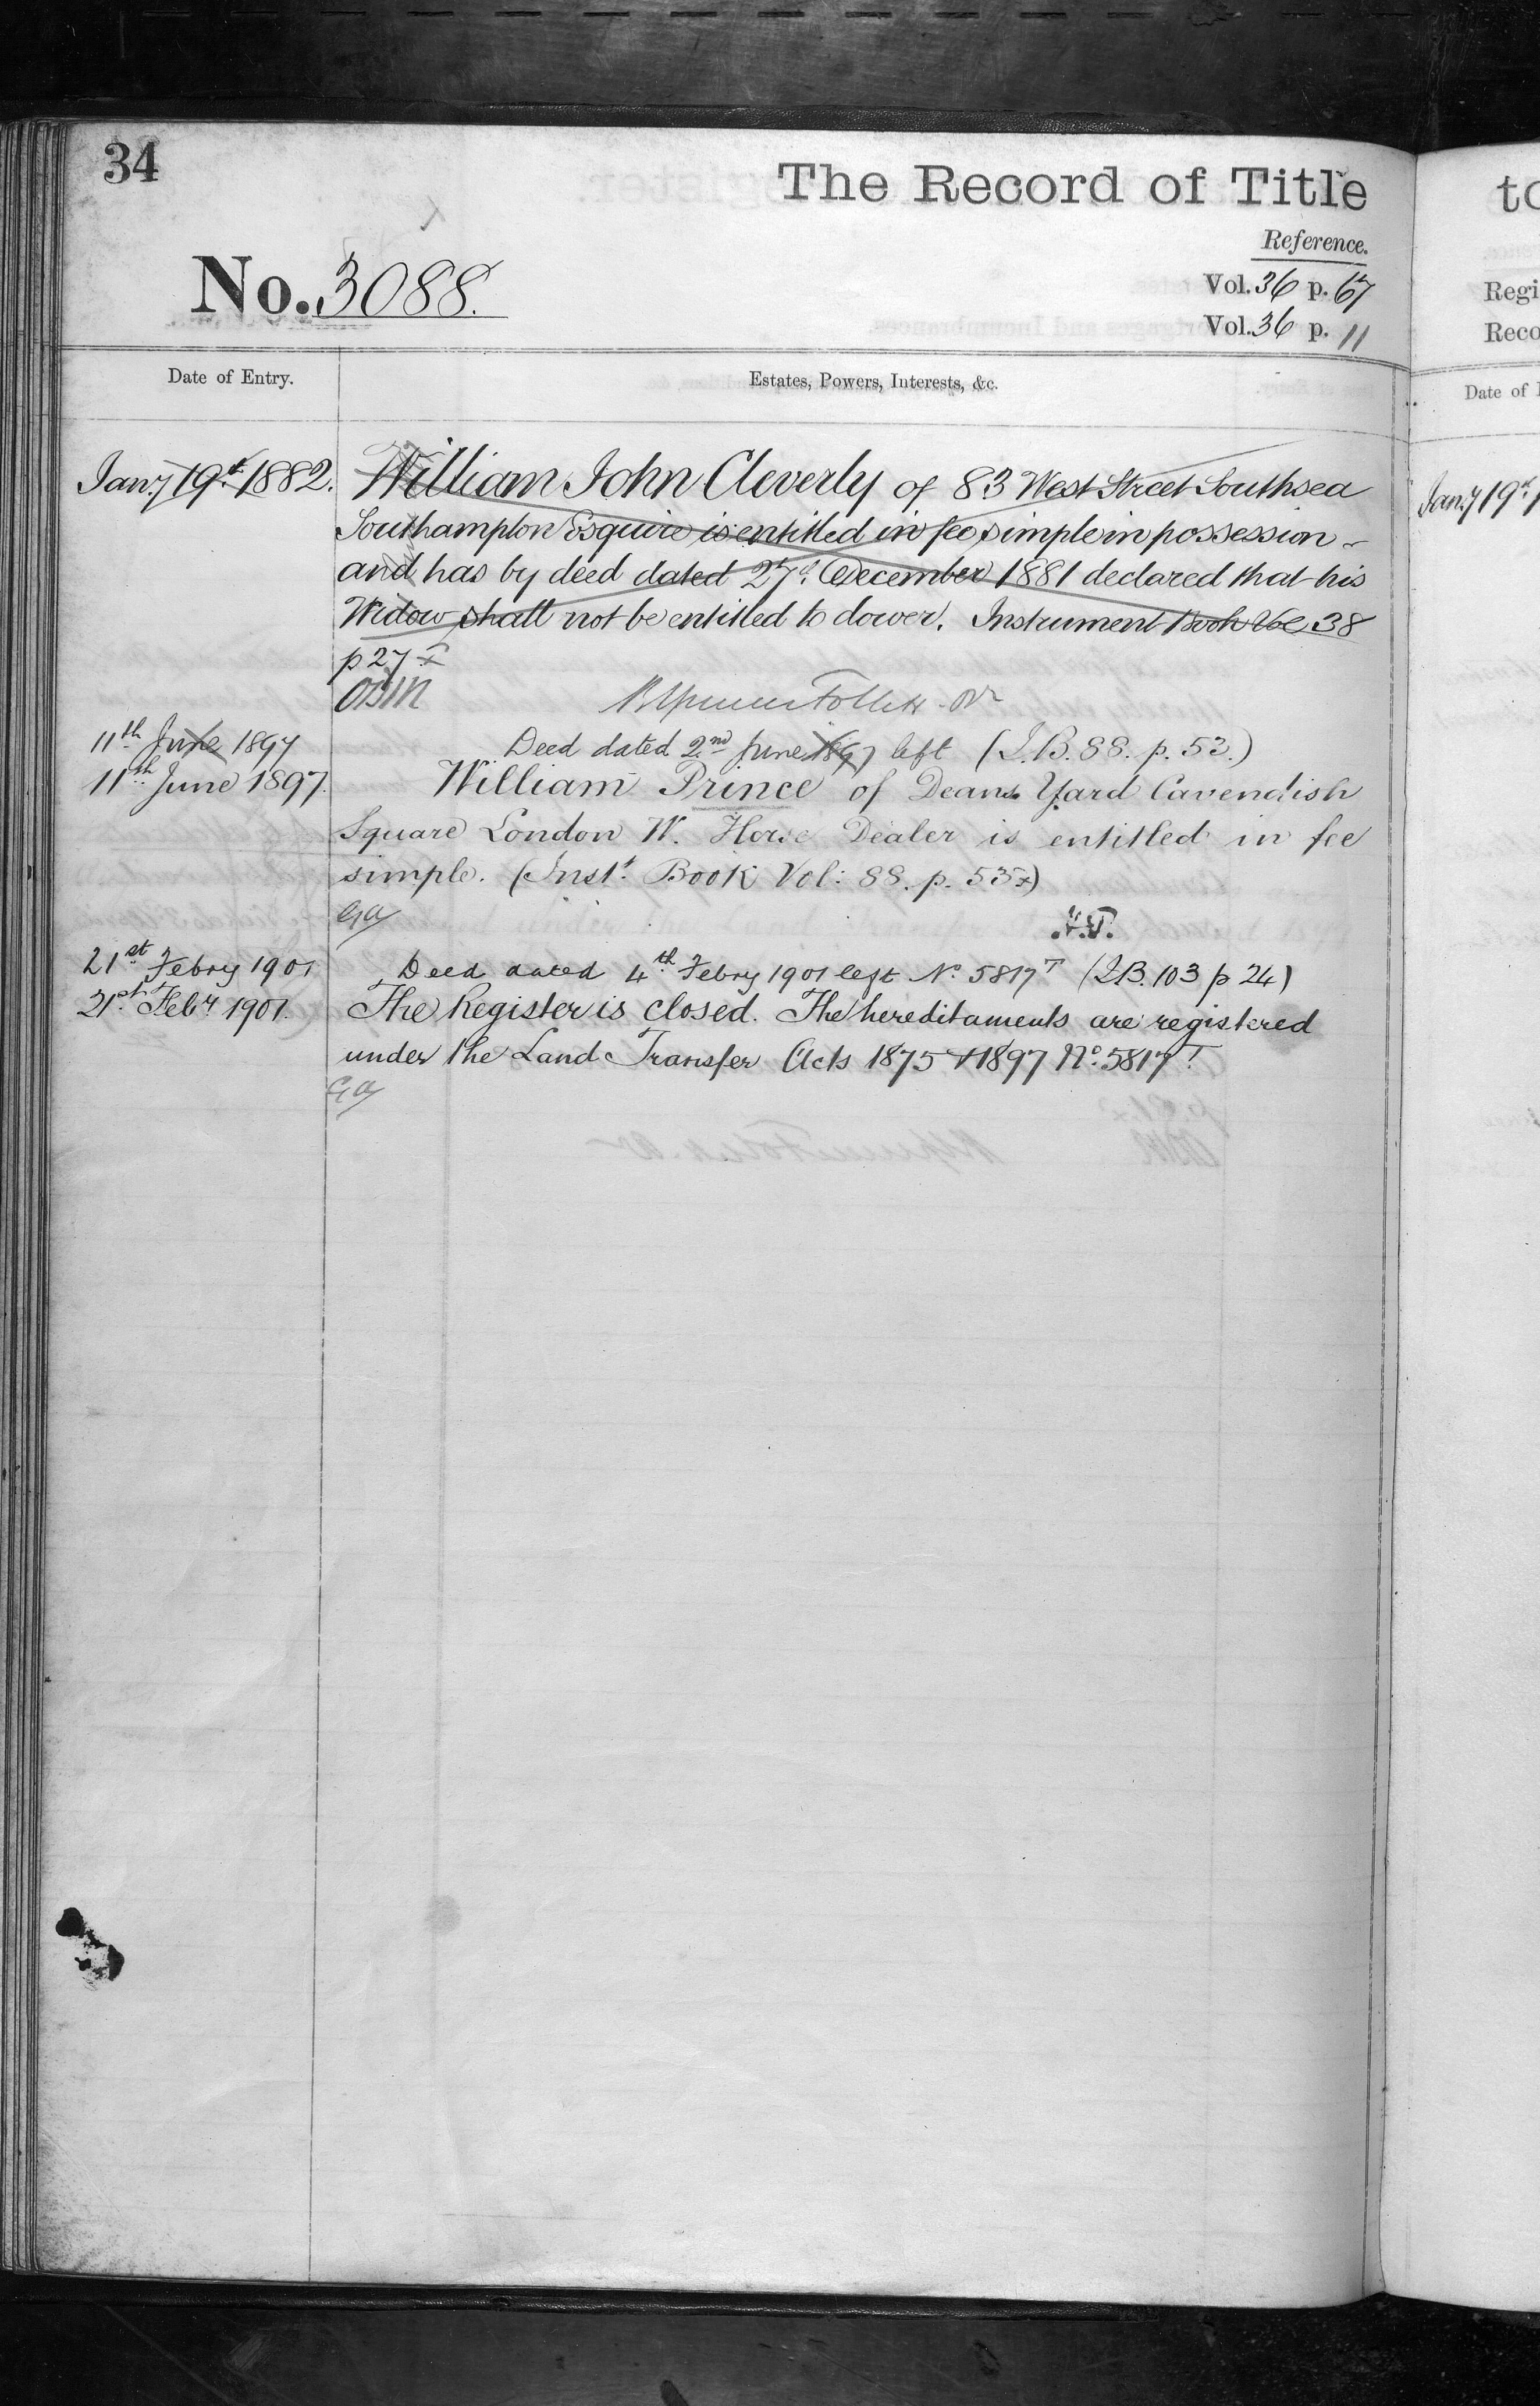 34
The Record of Title
Reference.
No. 3088.
Vol. 36 p. 67
Vol. 36 p. 11
Date of Entry.
Estates, Powers, Interests, &c.
Jany 19th 1882. William John Cleverly of 83 West Street Southsea
Southampton Esquire is entitled in fee simple in possession
and has by deed dated 27th December 1881 declared that his
Widow shall not be entitled to dower. Instrument Book Vol 38
p 27
11th June 1897 Deed dated 2nd June 1897 left (I.B. 88. p. 53.)
11th June 1897. William Prince of Deans Yard Cavendish
Square London W. Horse Dealer is entitled in fee
simple. (Inst. Book Vol: 88. p. 53)
21st Febry 1901 Deed dated 4th Febry 1901 left No. 5817T (I.B. 103 p 24)
21st Feby 1901. The Register is closed. The hereditaments are registered
under the Land Transfer Acts 1875 & 1897 No. 5817T
to
Regi
Reco
Date of
Jany 19th